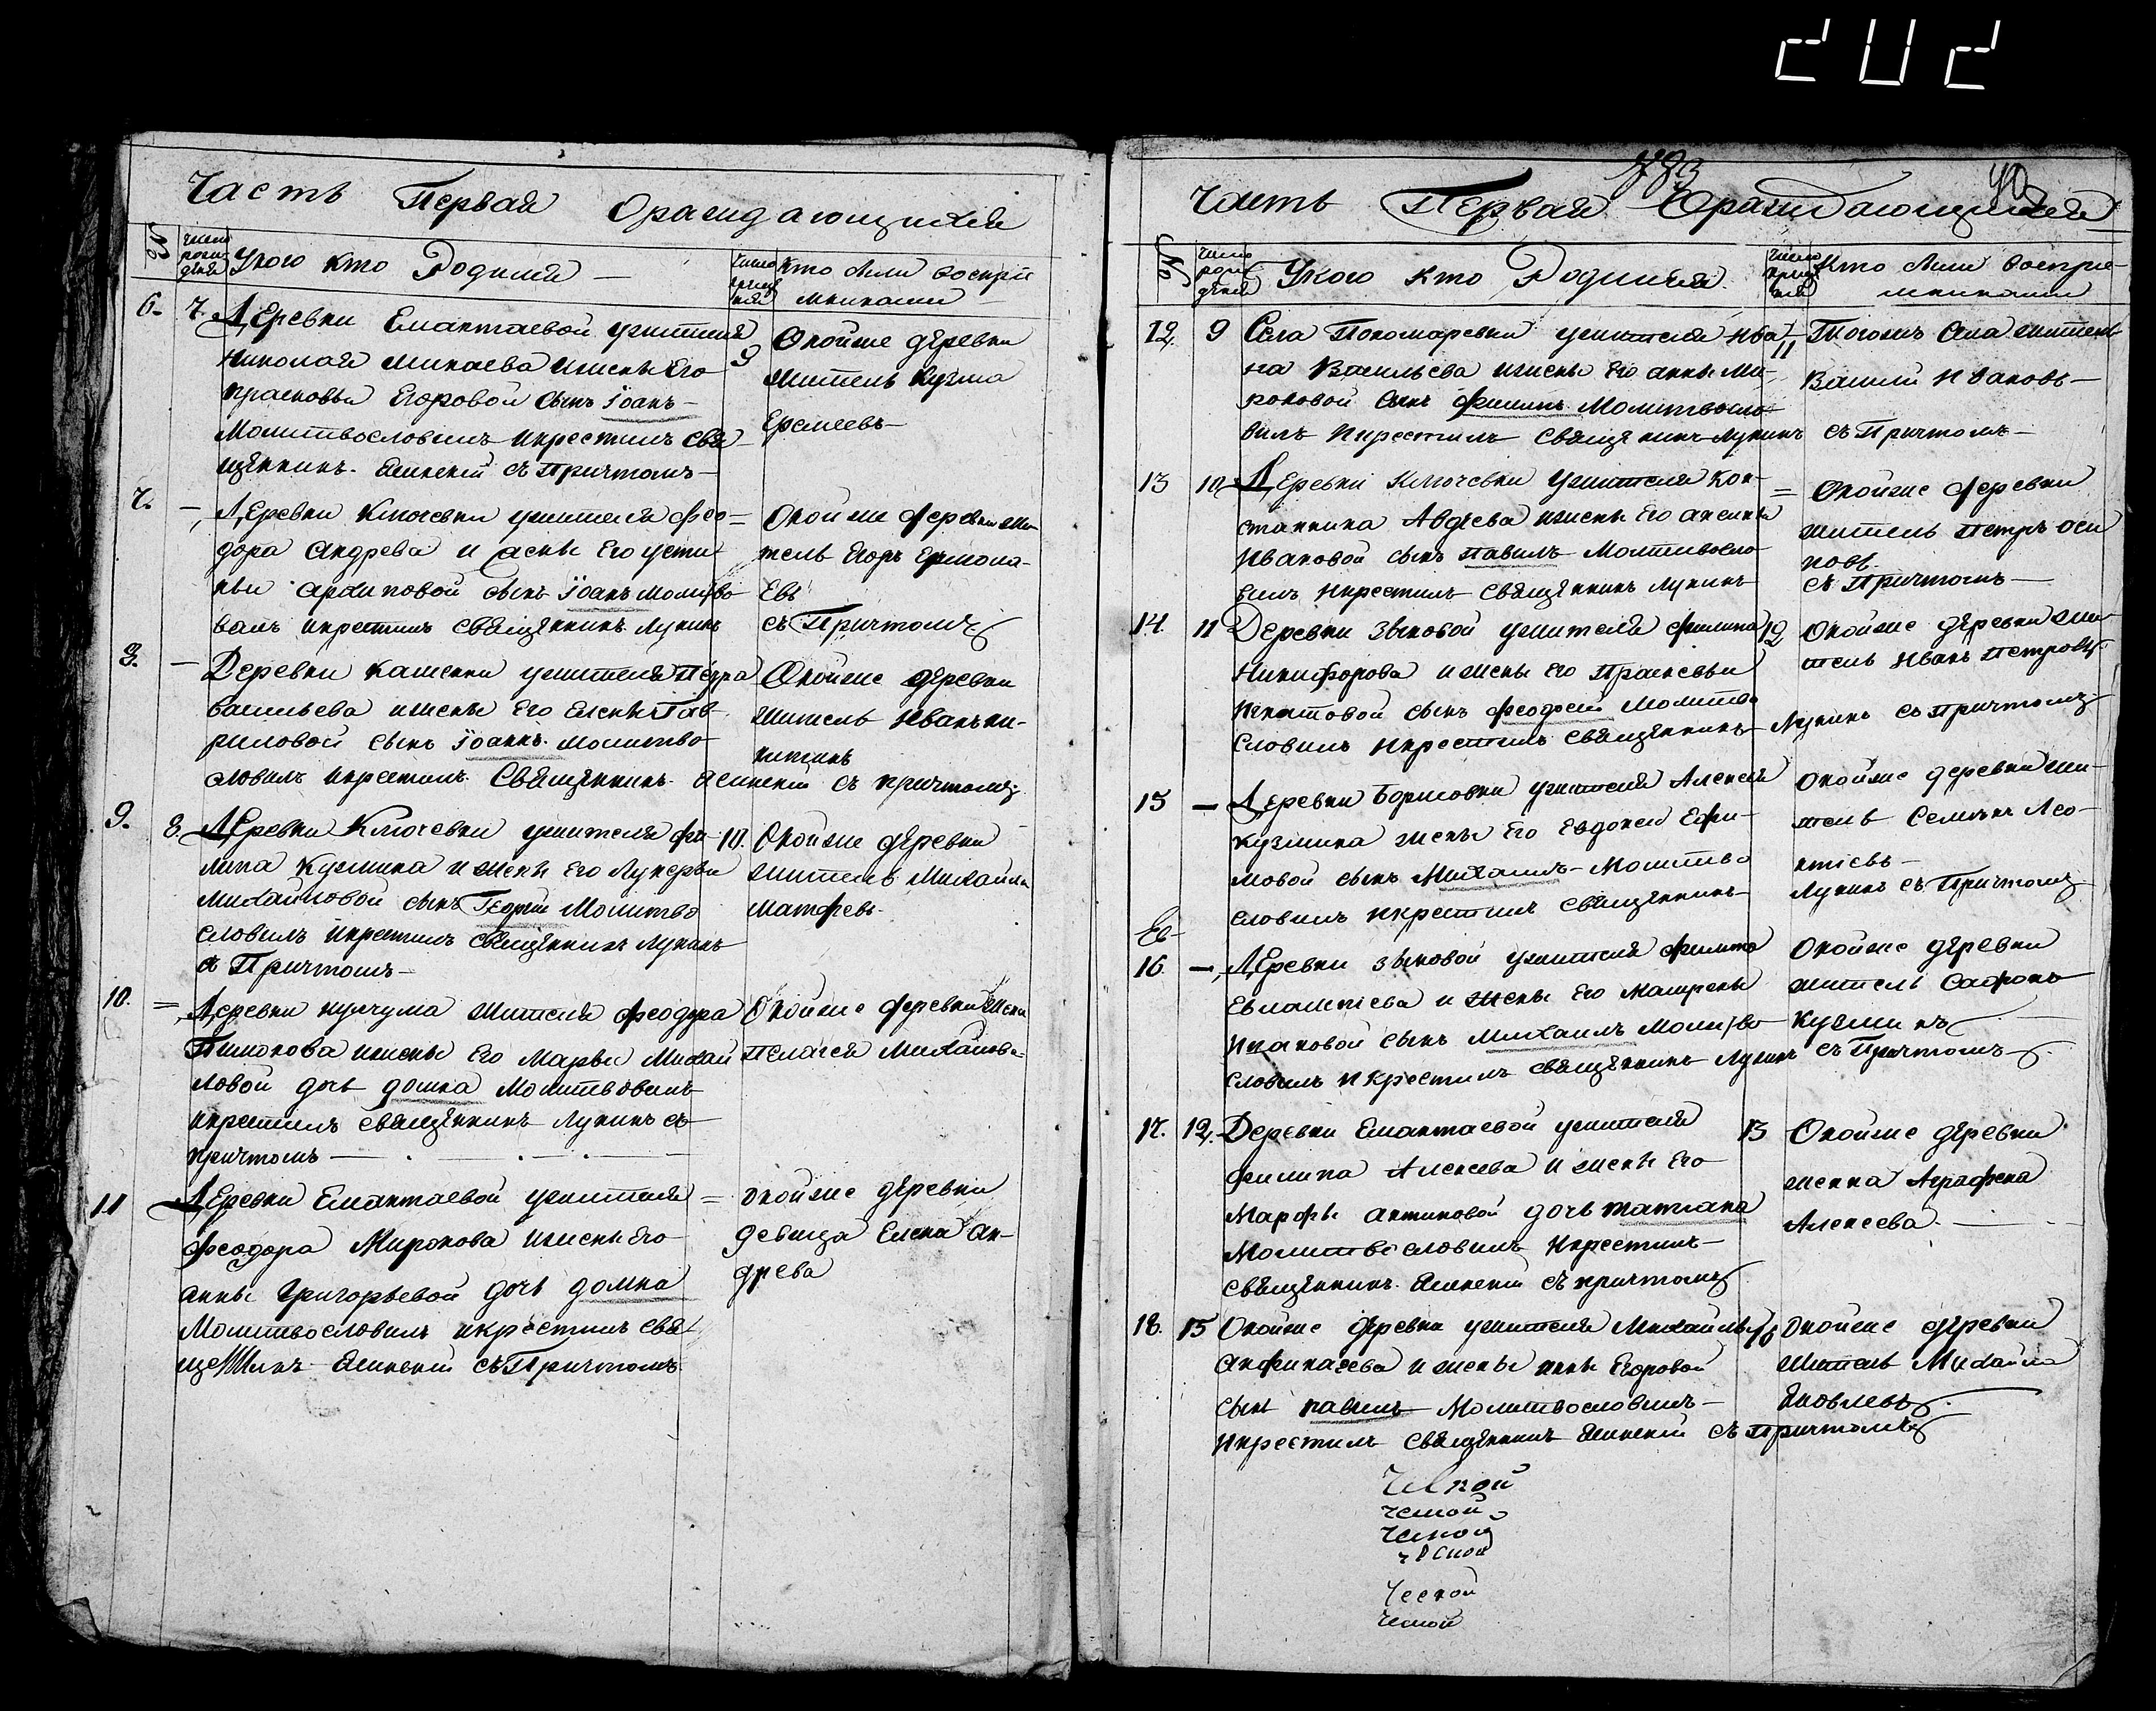 202
Часть Первая Ораждающихся
№
число рожденія
Укого кто Родился
число крещенія
Кто были восприемниками
6. 7. Деревни Емантаевой ужителя
Николая Минаева ижены Его
прасковьи Егоровой сынъ Іоанъ
Молитвословилъ икрестилъ Свя-
щенникъ Ясинскій съ Притомъ
9
Окойже деревни
житель Кузма
Еремеевъ
7. Деревни Ключевки ужителя фео-
дора Андрева и жены Его усти-
ньи архиповой сынъ Іоанъ молитво
валъ икрестилъ священникъ Лукинъ
Окойже деревни жи-
тель Егоръ Ермола-
Евъ
съ Притомъ
8. Деревни Каменки ужителя Петра
Васильева ижены Его Елены Гав-
риловой сынъ Іоаннъ молитво
словилъ икрестилъ Священникъ Ясинскій съ притомъ
Окойже деревни
житель Иванъ ни-
китинъ
9. 8. Деревни Ключевки ужителя фи-
липа Кузмина и жены Его Лукерьи
Михайловой сынъ Георгій Молитво
словилъ икрестилъ священникъ Лукинъ
съ Притомъ
10. Окойже деревни
житель Михайла
Матфевъ
10. Деревни кулчума жителя Феодора
ижены Его Марьи Михай
ловой дочь домна Молитвовалъ
икрестилъ священникъ Лукинъ съ
притомъ
Окойже деревни жена
Пелагея Михайлова
11 Деревни Емантаевой ужителя
Феодора Миронова ижены Его
анны Григорьевой дочь домна
Молитвословилъ икрестилъ свя
щенникъ Ясинскій съ Притомъ
окойже деревни
девица Елена Ан-
древа
Часть Первая Ораждающихся
№
число рожденія
Укого кто Родился
число крещенія
Кто были восприе-
мниками
12. 9 Села Пономаревки ужителя Ива
на Васильева ижены Его анны Ми-
роновой сынъ Филипъ Молитвосло-
вилъ икрестилъ Священникъ Лукинъ съ Притомъ
11
Тогожъ Села житель
Василій Ивановъ
13 10. Деревни Ключевки ужителя Кон-
стантина Авдеева ижены Его аксиньи
Ивановой сынъ павилъ Молитвосло
вилъ икрестилъ Священникъ Лукинъ
Окойже деревни
житель Петръ Оси
повъ
съ Притомъ
14. 11 Деревни Зыковой ужителя Филипа
Никифорова и жены Его Прасковьи
Игнатовой сынъ феофей Молитво
словилъ икрестилъ священникъ Лукинъ съ притомъ
12 Окойже деревни жи-
тель Иванъ Петровъ
15 Деревни Борисовки ужителя Алексея
Кузмина жены Его Евдокеи Ефи-
мовой сынъ Михаилъ Молитво
словилъ икрестилъ священникъ
Окойже деревни жи-
тель Семенъ Лео-
нтіевъ
Лукинъ съ Притомъ
16. Деревни Зыковой ужителя Филипа
Евлантіева и жены Его Матрены
Исаковой сынъ Михаилъ Молитво
словилъ икрестилъ священникъ Лукинъ съ Притомъ
Окойже деревни
житель Сафронъ
Кузминъ
17. 12. Деревни Емантаевой ужителя
филипа Алексева и жены Его
Марфы антиповой дочь татиана
Молитвословилъ икрестилъ
священникъ Ясинскій съ притомъ
13 Окойже деревни
женка Аграфена
Алексева
18. 15 Окойже деревни ужителя Михайлы
Анфиногева и жены анны Егоровой
сынъ павилъ Молитвословилъ
икрестилъ священникъ Ясинскій съ притомъ
16 Окойже деревни
житель Михайла
Яковлевъ